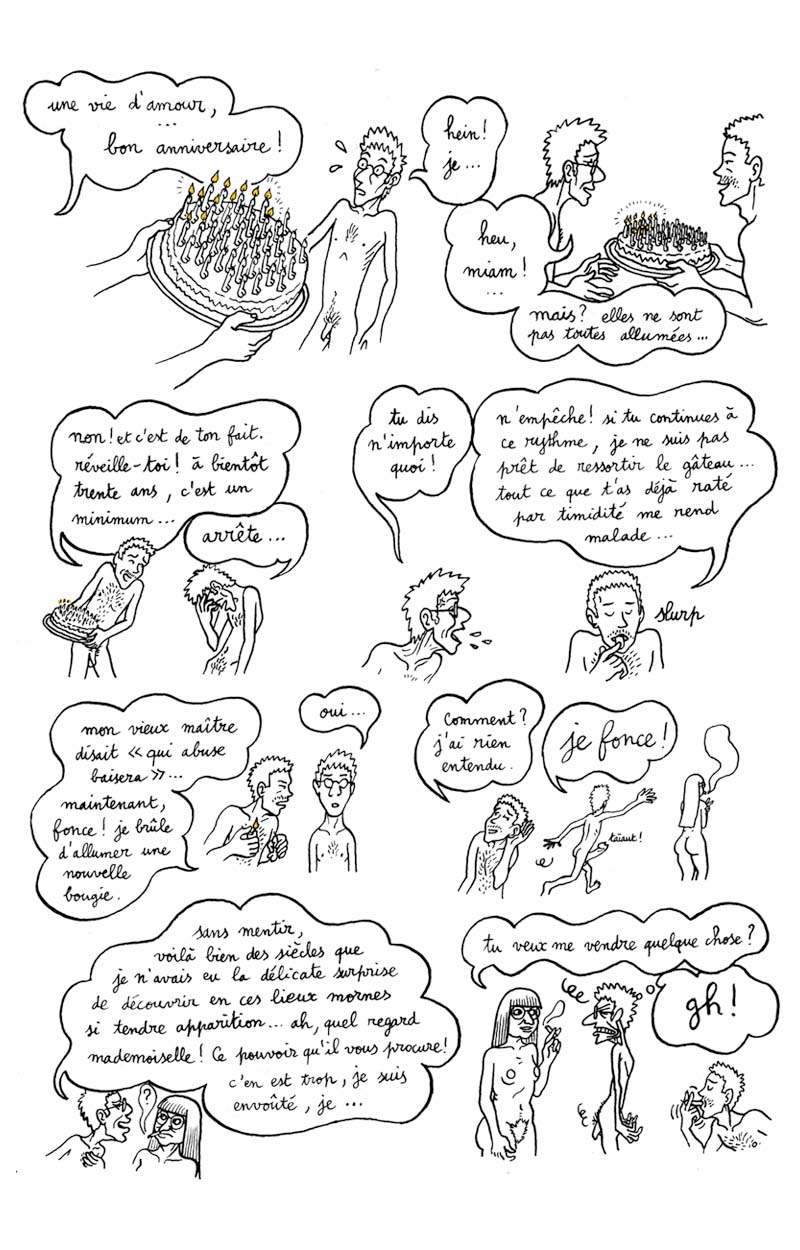 une vie d'amour,
...
bon anniversaire !
hein !
je ...
heu,
miam !
...
mais ? elles ne sont
pas toutes allumées...
non ! et c'est de ton fait.
réveille-toi ! à bientôt
trente ans, c'est un
minimum...
arrête ...
tu dis
n'importe
quoi !
n'empêche ! si tu continues à
ce rythme, je ne suis pas
prêt de ressortir le gâteau ...
tout ce que t'as déjà raté
par timidité me rend
malade ...
slurp
mon vieux maître
disait « qui abuse
baisera »...
maintenant,
fonce ! je brûle
d'allumer une
nouvelle
bougie.
oui ...
comment ?
j'ai rien
entendu.
je fonce !
taïaut !
sans mentir,
voilà bien des siècles que
je n'avais eu la délicate surprise
de découvrir en ces lieux mornes
si tendre apparition... ah, quel regard
mademoiselle ! Ce pouvoir qu'il vous procure !
c'en est trop, je suis
envoûté, je ...
?
tu veux me vendre quelque chose ?
gh !